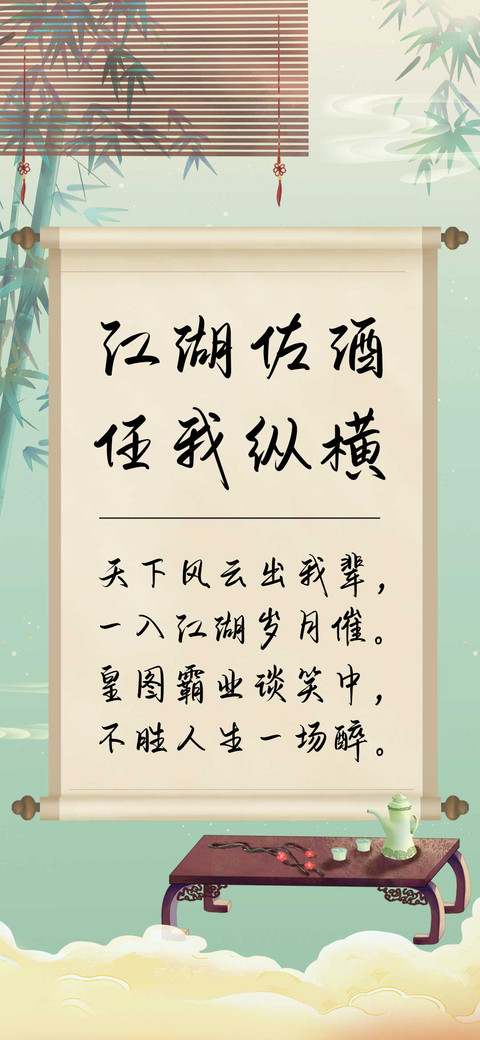 江湖佐酒
任我纵横
天下风云出我辈，
一入江湖岁月催。
皇图霸业谈笑中，
不胜人生一场醉。